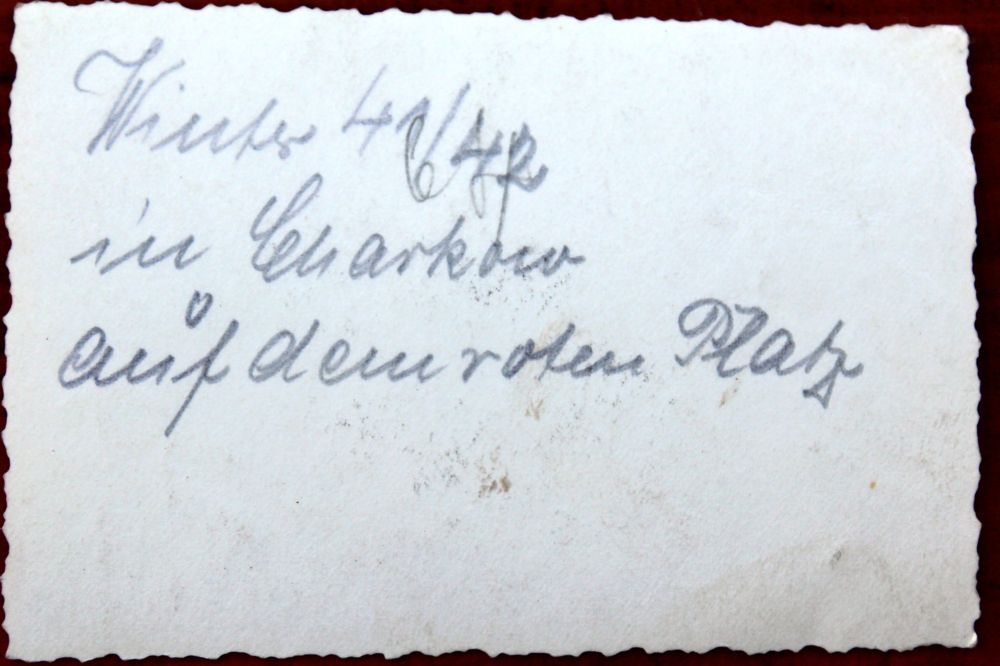 Winter 41/42
in Charkow
auf dem roten Platz